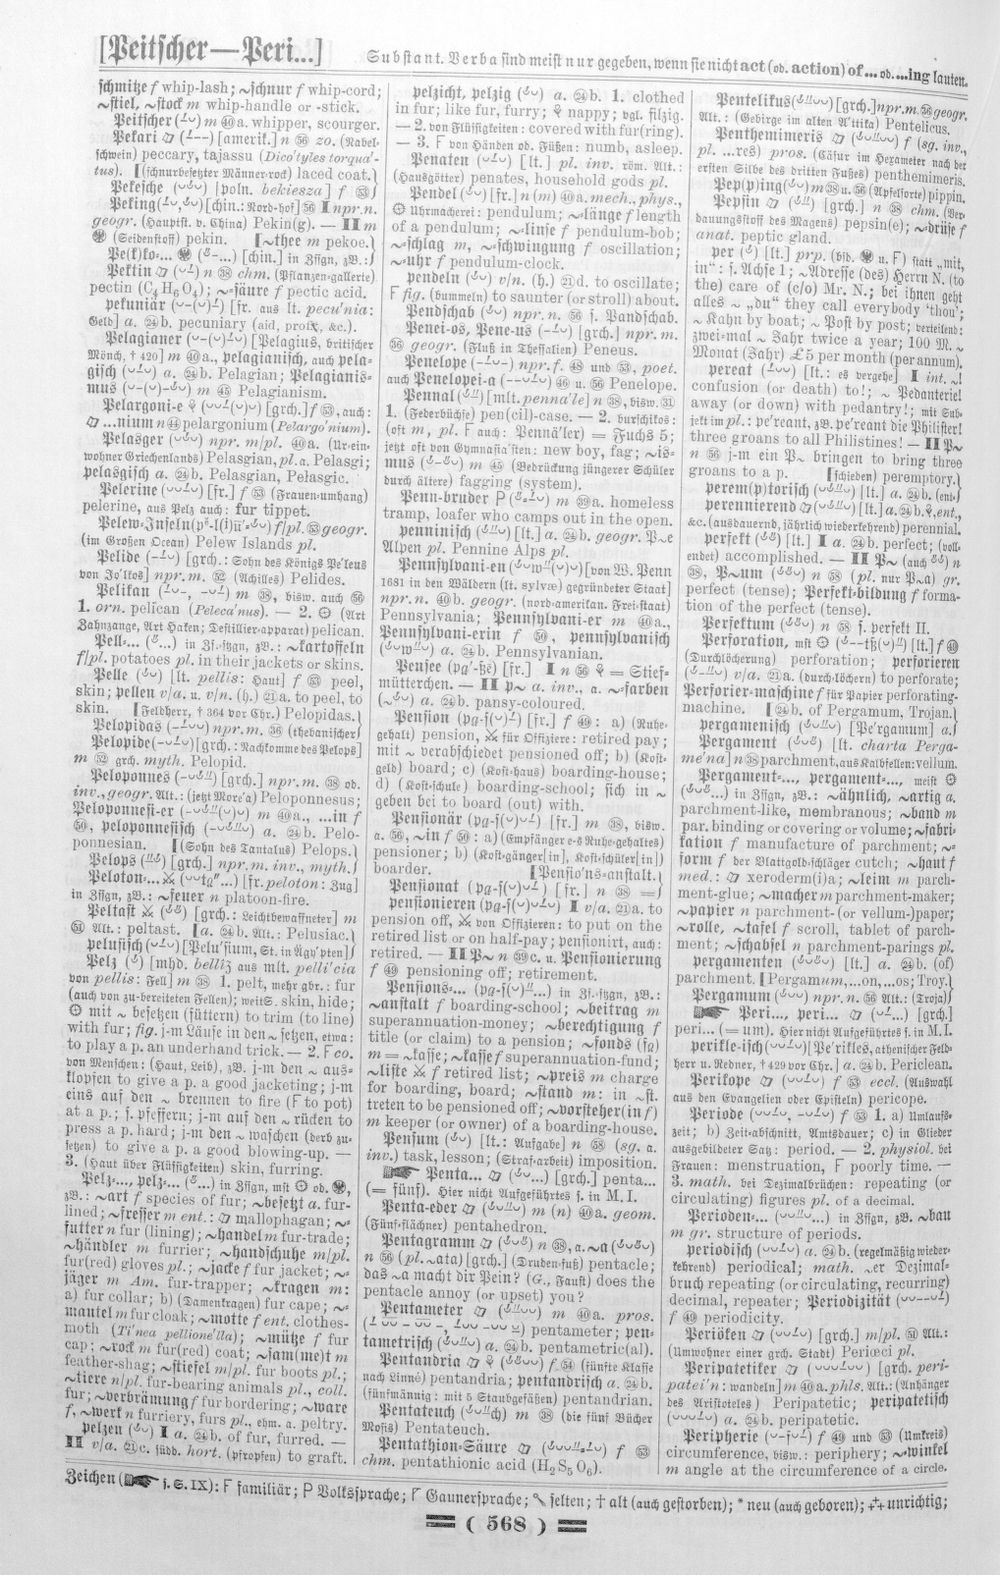 [Peitscher—Peri...]
Substant. Verba sind meist nur gegeben, wenn sie nicht act (od. action) of... od. ...ing lauten.
schmitze f whip-lash; ~schnur f whip-cord;
~stiel, ~stock m whip-handle or -stick.
Peitscher m a. whipper, scourger.
Pekari [amerik.] n zo. (Nabel-
schwein) peccary, tajassu (Dico'tyles torqua'-
tus). [(schnurbesetzter Männer-rock) laced coat.
Pekesche [poln. bekiesza] f
Peking [chin.: Nord-hof] I npr. n.
geogr. (Hauptst. v. China) Pekin(g). — II m
(Seidenstoff) pekin. [~thee m pekoe.
Pe(k)ko-... [chin.] in Zssgn, zB.:
Pektin n chm. (Pflanzen-gallerte)
pectin (C4 H6 O4); ~säure f pectic acid.
pekuniär [fr. aus lt. pecu'nia:
Geld] a. b. pecuniary (aid, profit, &c.).
Pelagianer [Pelagius, britischer
Mönch, † 420] m a., pelagianisch, auch pela-
gisch a. b. Pelagian; Pelagianis-
mus m Pelagianism.
Pelargoni-e [grch.] f, auch:
...nium n pelargonium (Pelargo'nium).
Pelasger npr. m/pl. a. (Ur-ein-
wohner Griechenlands) Pelasgian, pl. a. Pelasgi;
pelasgisch a. b. Pelasgian, Pelasgic.
Pelerine [fr.] f (Frauen-umhang)
pelerine, aus Pelz auch: fur tippet.
Pelew-Inseln f/pl. geogr.
(im Großen Ocean) Pelew Islands pl.
Pelide [grch.: Sohn des Königs Pe'leus
von Jo'lkos] npr. m. (Achilles) Pelides.
Pelikan m, bisw. auch
1. orn. pelican (Peleca'nus). — 2. (Art
Zahnzange, Art Haken; Destillier-apparat) pelican.
Pell-... in Zs.-szgn, zB.: ~kartoffeln
f/pl. potatoes pl. in their jackets or skins.
Pelle [lt. pellis: Haut] f peel,
skin; pellen v/a. u. v/n. (h.) a. to peel, to
skin. [Feldherr, † 364 vor Chr.) Pelopidas.
Pelopidas npr. m. (thebanischer
Pelopide [grch.: Nachkomme des Pelops]
m grch. myth. Pelopid.
Peloponnes [grch.] npr. m. od.
inv., geogr. Alt.: (jetzt More'a) Peloponnesus;
Peloponnesi-er m a., ...in f
, peloponnesisch a. b. Pelo-
ponnesian. [(Sohn des Tantalus) Pelops.
Pelops [grch.] npr. m. inv., myth.
Peloton-... [fr. peloton: Zug]
in Zssgn, zB.: ~feuer n platoon-fire.
Peltast [grch.: Leichtbewaffneter] m
Alt.: peltast. [a. b. Alt.: Pelusiac.
pelusisch [Pelu'sium, St. in Ägy'pten]
Pelz [mhd. belliz aus mlt. pelli'cia
von pellis: Fell] m 1. pelt, mehr gbr.: fur
(auch von zu-bereiteten Fellen); weitS. skin, hide;
mit ~ besetzen (füttern) to trim (to line)
with fur; fig. j-m Läuse in den ~ setzen, etwa:
to play a p. an underhand trick. — 2. F co.
von Menschen: (Haut, Leib), zB. j-m den ~ aus-
klopfen to give a p. a good jacketing; j-m
eins auf den ~ brennen to fire (F to pot)
at a p.; s. pfeffern; j-m auf den ~ rücken to
press a p. hard; j-m den ~ waschen (derb zu-
setzen) to give a p. a good blowing-up. —
3. (Haut über Flüssigkeiten) skin, furring.
Pelz-..., pelz-... in Zssgn, mst od. ,
zB.: ~art f species of fur; ~besetzt a. fur-
lined; ~fresser m ent.: mallophagan; ~-
futter n fur (lining); ~handel m fur-trade;
~händler m furrier; ~handschuhe m/pl.
fur(red) gloves pl.; ~jacke f fur jacket; ~-
jäger m Am. fur-trapper; ~kragen m:
a) fur collar; b) (Damenkragen) fur cape; ~-
mantel m fur cloak; ~motte f ent. clothes-
moth (Ti'nea pellione'lla); ~mütze f fur
cap; ~rock m fur(red) coat; ~sam(me)t m
feather-shag; ~stiefel m/pl. fur boots pl.;
~tiere n/pl. fur-bearing animals pl., coll.
fur; ~verbrämung f fur bordering; ~ware
f, ~werk n furriery, furs pl., ehm. a. peltry.
pelzen I a. b. of fur, furred. —
II v/a. c. südd. hort. (pfropfen) to graft.
pelzicht, pelzig a. b. 1. clothed
in fur; like fur, furry; nappy; vgl. filzig.
— 2. von Flüssigkeiten: covered with fur(ring).
— 3. F von Händen od. Füßen: numb, asleep.
Penaten [lt.] pl. inv. röm. Alt.:
(Hausgötter) penates, household gods pl.
Pendel [fr.] n (m) a. mech., phys.,
Uhrmacherei: pendulum; ~länge f length
of a pendulum; ~linse f pendulum-bob;
~schlag m, ~schwingung f oscillation;
~uhr f pendulum-clock.
pendeln v/n. (h.) d. to oscillate;
F fig. (bummeln) to saunter (or stroll) about.
Pendschab npr. n. s. Pandschab.
Penei-os, Pene-us [grch.] npr. m.
geogr. (Fluß in Thessalien) Peneus.
Penelope npr. f. und , poet.
auch Penelopei-a u. Penelope.
Pennal [mlt. penna'le] n , bisw.
1. (Federbüchse) pen(cil)-case. — 2. burschikos:
(oft m, pl. F auch: Pennä'ler) = Fuchs 5;
jetzt oft von Gymnasia'sten: new boy, fag; ~is-
mus m (Bedrückung jüngerer Schüler
durch ältere) fagging (system).
Penn-bruder P m a. homeless
tramp, loafer who camps out in the open.
penninisch [lt.] a. b. geogr. P~e
Alpen pl. Pennine Alps pl.
Pennsylvani-en [von W. Penn
1681 in den Wäldern (lt. sylvæ) gegründeter Staat]
npr. n. b. geogr. (nord-amerikan. Frei-staat)
Pennsylvania; Pennsylvani-er m a.,
Pennsylvani-erin f , pennsylvanisch
a. b. Pennsylvanian.
Pensee [fr.] I n = Stief-
mütterchen. — II p~ a. inv., a. ~farben
a. b. pansy-coloured.
Pension [fr.] f : a) (Ruhe-
gehalt) pension, für Offiziere: retired pay;
mit ~ verabschiedet pensioned off; b) (Kost-
geld) board; c) (Kost-haus) boarding-house;
d) (Kost-schule) boarding-school; sich in ~
geben bei to board (out) with.
Pensionär [fr.] m , bisw.
a. , ~in f : a) (Empfänger e-s Ruhe-gehaltes)
pensioner; b) (Kost-gänger[in], Kost-schüler[in])
boarder. [Pensio'ns-anstalt.
Pensionat [fr.] n =
pensionieren I v/a. a. to
pension off, von Offizieren: to put on the
retired list or on half-pay; pensionirt, auch:
retired. — II P~ n c. u. Pensionierung
f pensioning off; retirement.
Pensions-... in Zs.-szgn, zB.:
~anstalt f boarding-school; ~beitrag m
superannuation-money; ~berechtigung f
title (or claim) to a pension; ~fonds
m = ~kasse; ~kasse f superannuation-fund;
~liste f retired list; ~preis m charge
for boarding, board; ~stand m: in ~st.
treten to be pensioned off; ~vorsteher(in f)
m keeper (or owner) of a boarding-house.
Pensum [lt.: Aufgabe] n (sg. a.
inv.) task, lesson; (Straf-arbeit) imposition.
Penta... [grch.] penta...
(= fünf). Hier nicht Aufgeführtes s. in M. I.
Penta-eder m (n) a. geom.
(Fünf-flächner) pentahedron.
Pentagramm n , a. ~a
n (pl. ~ata) [grch.] (Druden-fuß) pentacle;
das ~a macht dir Pein? (G., Faust) does the
pentacle annoy (or upset) you?
Pentameter m a. pros.
pentameter; pen-
tametrisch a. b. pentametric(al).
Pentandria f. (fünfte Klasse
nach Linné) pentandria; pentandrisch a. b.
(fünfmännig: mit 5 Staubgefäßen) pentandrian.
Pentateuch m (die fünf Bücher
Mosis) Pentateuch.
Pentathion-Säure f
chm. pentathionic acid (H2 S5 O6).
Pentelikus [grch.] npr. m. geogr.
Alt.: (Gebirge im alten A'ttika) Pentelicus.
Penthemimeris f (sg. inv.,
pl. ...res) pros. (Cäsur im Hexameter nach der
ersten Silbe des dritten Fußes) penthemimeris.
Pep(p)ing m u. (Apfelsorte) pippin.
Pepsin [grch.] n chm. (Ver-
dauungsstoff des Magens) pepsin(e); ~drüse f
anat. peptic gland.
per [lt.] prp. (bsd. u. F) statt „mit,
in“: s. Achse 1; ~ Adresse (des) Herrn N. (to
the) care of (c/o) Mr. N.; bei ihnen geht
alles ~ „du“ they call everybody 'thou';
~ Kahn by boat; ~ Post by post; verteilend:
zwei-mal ~ Jahr twice a year; 100 M. ~
Monat (Jahr) £ 5 per month (per annum).
pereat [lt.: es vergehe] I int. ~!
confusion (or death) to!; ~ Pedanterie!
away (or down) with pedantry!; mit Sub-
jekt im pl.: pe'reant, zB. pe'reant die Philister!
three groans to all Philistines! — II P~
n j-m ein P~ bringen to bring three
groans to a p. [schieden) peremptory.
perem(p)torisch [lt.] a. b. (ent-
perennierend [lt.] a. b. , ent.,
&c. (ausdauernd, jährlich wiederkehrend) perennial.
perfekt [lt.] I a. b. perfect; (voll-
endet) accomplished. — II P~ (auch ) n
, P~um n (pl. nur P~a) gr.
perfect (tense); Perfekt-bildung f forma-
tion of the perfect (tense).
Perfektum n s. perfekt II.
Perforation, mst [lt.] f
(Durchlöcherung) perforation; perforieren
v/a. a. (durchlöchern) to perforate;
Perforier-maschine f für Papier perforating-
machine. [b. of Pergamum, Trojan.
pergamenisch [Pe'rgamum] a.
Pergament [lt. charta Perga-
me'na] n parchment, aus Kalbfellen: vellum.
Pergament-..., pergament-..., meist
in Zssgn, zB.: ~ähnlich, ~artig a.
parchment-like, membranous; ~band m
par. binding or covering or volume; ~fabri-
kation f manufacture of parchment; ~-
form f der Blattgold-schläger cutch; ~haut f
med.: xeroderm(i)a; ~leim m parch-
ment-glue; ~macher m parchment-maker;
~papier n parchment- (or vellum-)paper;
~rolle, ~tafel f scroll, tablet of parch-
ment; ~schabsel n parchment-parings pl.
pergamenten [lt.] a. b. (of)
parchment. [Pergamum, ...on, ...os; Troy.
Pergamum npr. n. Alt.: (Troja)
Peri..., peri... [grch.]
peri... (= um). Hier nicht Aufgeführtes s. in M. I.
perikle-isch [Pe'rikles, athenischer Feld-
herr u. Redner, † 429 vor Chr.] a. b. Periclean.
Perikope f eccl. (Auswahl
aus den Evangelien oder Episteln) pericope.
Periode f 1. a) Umlaufs-
zeit; b) Zeit-abschnitt, Amtsdauer; c) in Glieder
ausgebildeter Satz: period. — 2. physiol. bei
Frauen: menstruation, F poorly time. —
3. math. bei Dezimalbrüchen: repeating (or
circulating) figures pl. of a decimal.
Perioden-... in Zssgn, zB. ~bau
m gr. structure of periods.
periodisch a. b. (regelmäßig wieder-
kehrend) periodical; math. ~er Dezimal-
bruch repeating (or circulating, recurring)
decimal, repeater; Periodizität
f periodicity.
Periöken [grch.] m/pl. Alt.:
(Umwohner einer grch. Stadt) Periœci pl.
Peripatetiker [grch. peri-
patei'n: wandeln] m a. phls. Alt.: (Anhänger
des Aristoteles) Peripatetic; peripatetisch
a. b. peripatetic.
Peripherie f und (Umkreis)
circumference, bisw.: periphery; ~winkel
m angle at the circumference of a circle.
Zeichen ( s. S. IX): F familiär; P Volkssprache; Γ Gaunersprache; selten; † alt (auch gestorben); * neu (auch geboren); unrichtig;
( 568 )